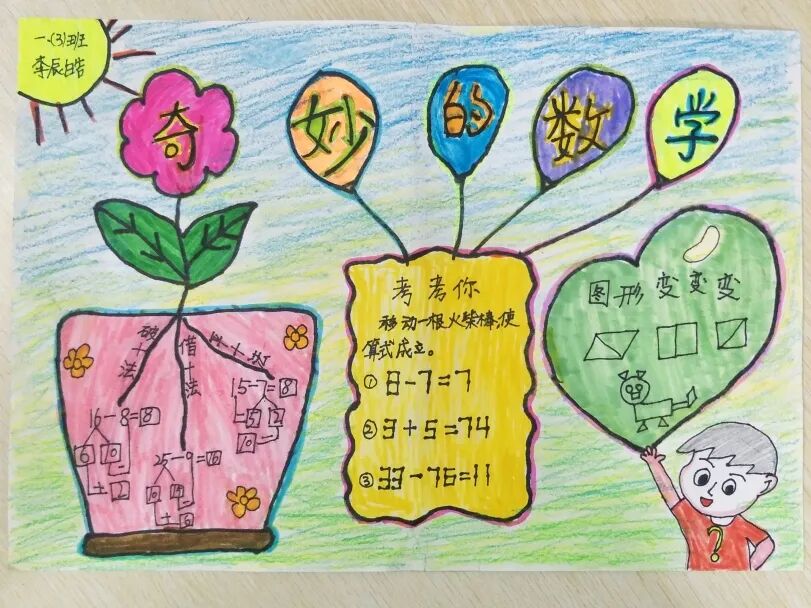 一.(3)班
李辰皓
奇妙的数学
破十法
借十法
平十法
16-8=8
6 10
+ 2
25-9=16
10
+ 6
15-7=8
-5 2
10
考考你
移动一根火柴棒,使
算式成立。
① 8-7=7
② 3+5=74
③ 33-76=11
图形变变变
?